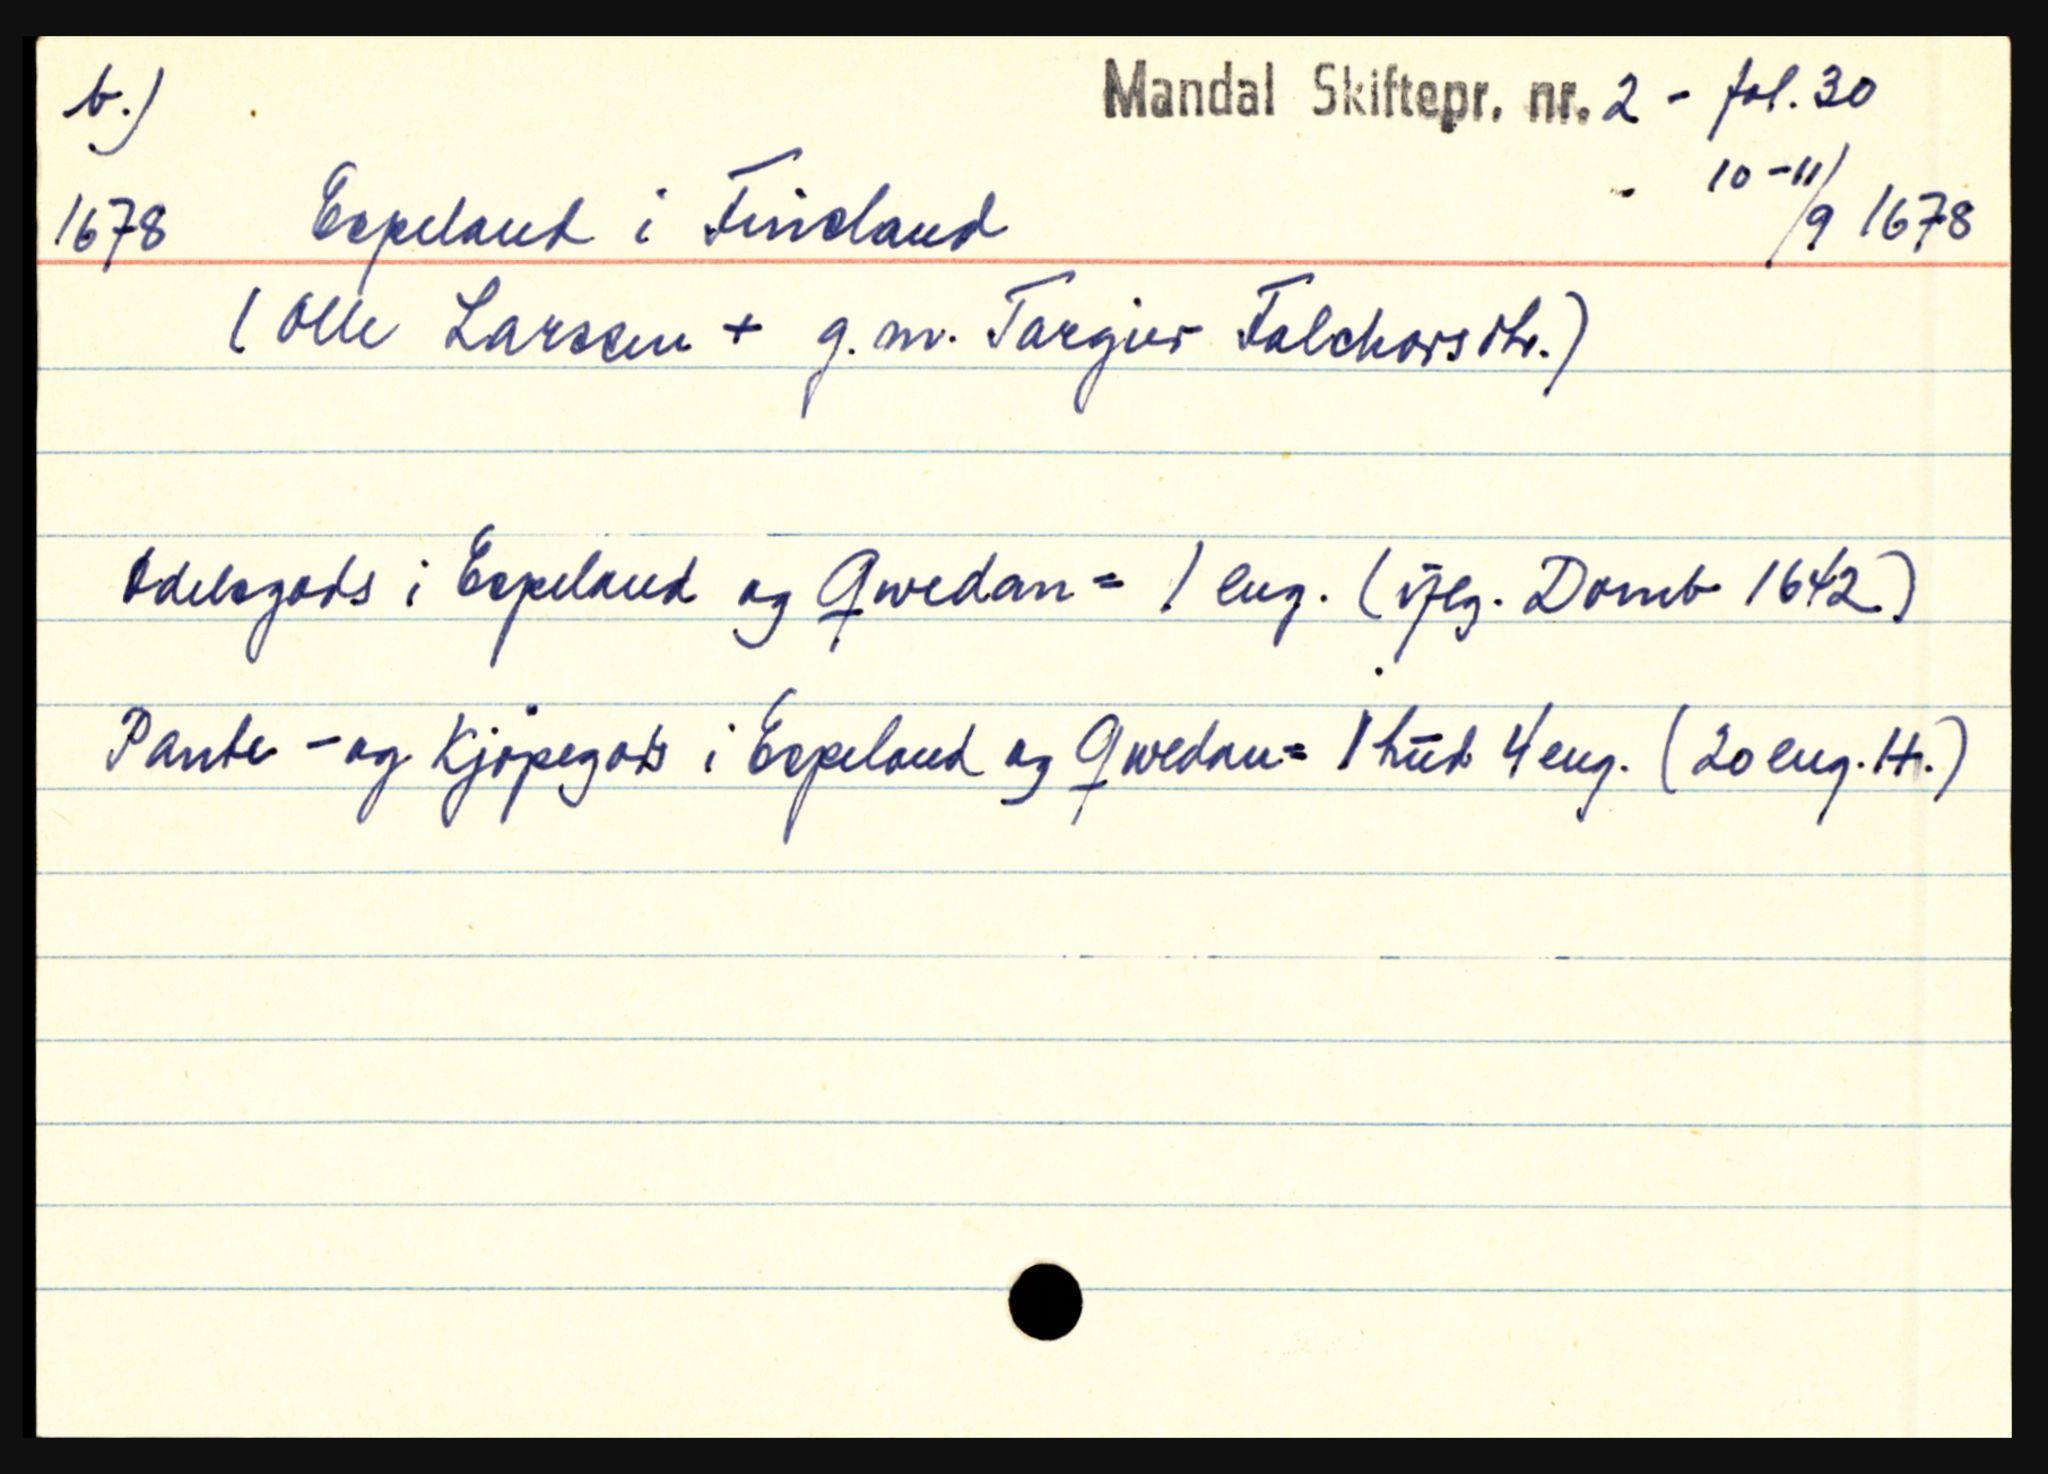 b.) Mandal Skiftepr. nr. 2 - fol. 30
10-11/9 1678
1678 Espeland i Finsland
(Olle Larssen + g.m. Targier Falchorsdtr.)
Odelsgods i Espeland og Qwedan = 1 eng. (iflg. Domb 1642)
Pante - og Kjøpegods i Espeland og Qwedan = 1 hud 4 eng. (20 eng. H.)